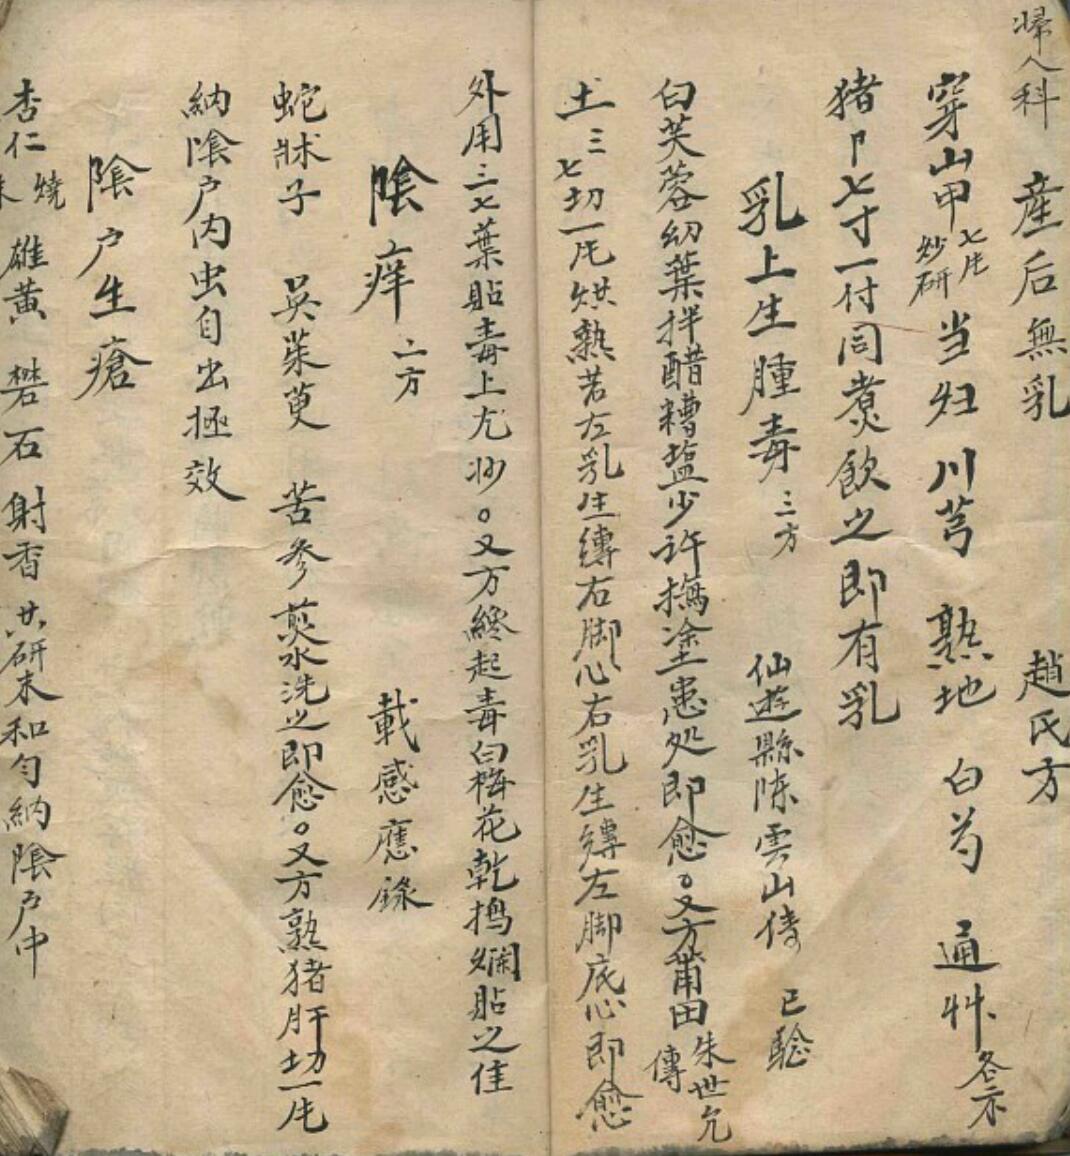 婦人科
産后無乳 趙氏方
穿山甲七片炒研 当归 川芎 熟地 白芍 通艸各
猪 七寸一付同煮飲之即有乳
乳上生腫毒三方 仙遊縣陳雲山傳 已驗
白芙蓉幼葉拌醋糟塩少许搗塗患処即愈。又方莆田朱世允傳
土三七切一片烘熱若左乳生縛右脚心右乳生縛左脚底心即愈
外用三七葉貼毒上尤妙。又方纔起毒白梅花乾搗爛貼之佳
陰痒二方 載感應錄
蛇牀子 吳茱萸 苦參煎水洗之即愈。又方熟猪肝切一片
納陰户内虫自出極效
陰户生瘡
杏仁燒末 雄黃 礬石 射香 共研末和匀納陰户中